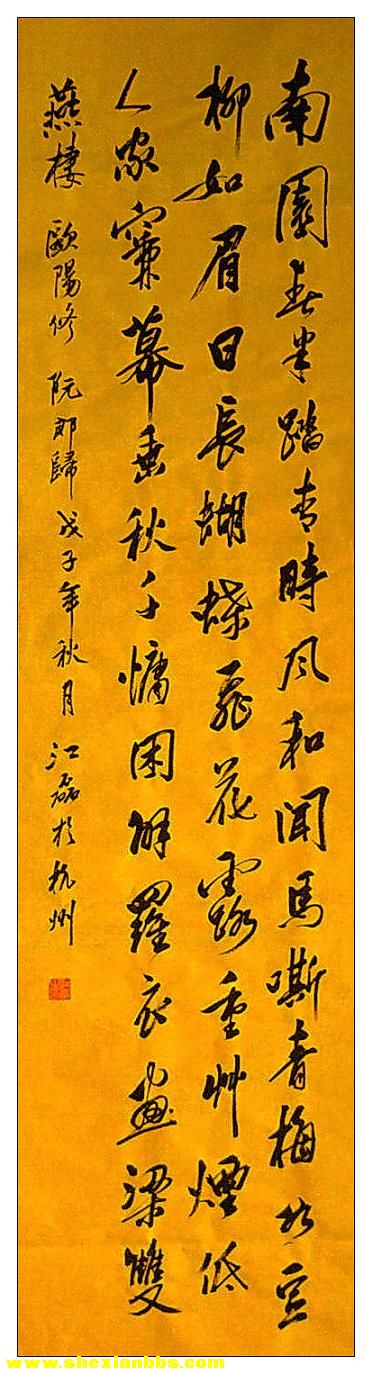 南園春半踏青時風和聞馬嘶青梅如豆
柳如眉日長蝴蝶飛花露重艸煙低
人家簾幕垂秋千慵困解羅衣畫梁雙
燕棲 歐陽修 阮郎歸 戊子年秋月 江磊於杭州
www.shexianbbs.com